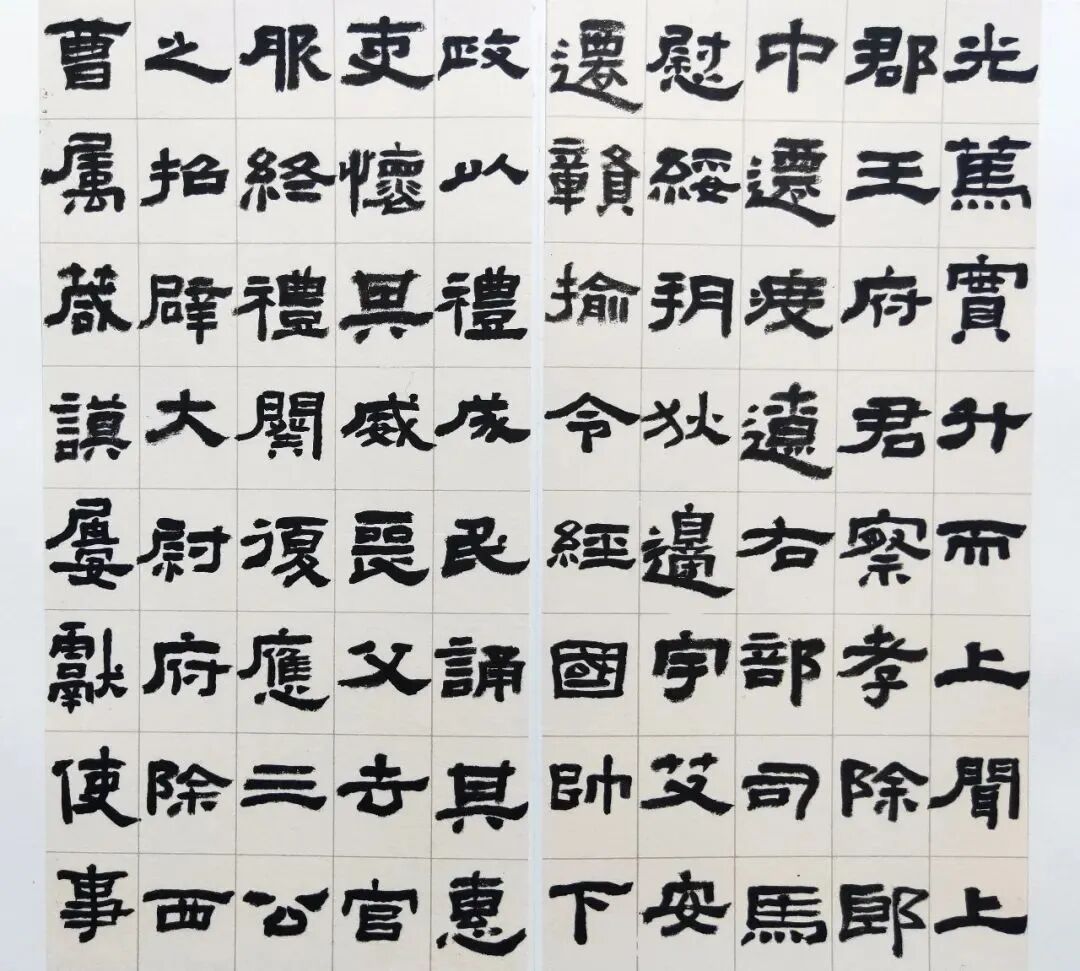 光篤實升而上聞上
郡王府君察孝除郎
中遷度遼右部司馬
慰綏朔狄邊宇艾安
遷贛揄令經國帥下
政以禮成民誦其惠
吏懷其威喪父去官
服終禮闋復應三公
之招辟大尉府除西
曹屬葴謨屢獻使事